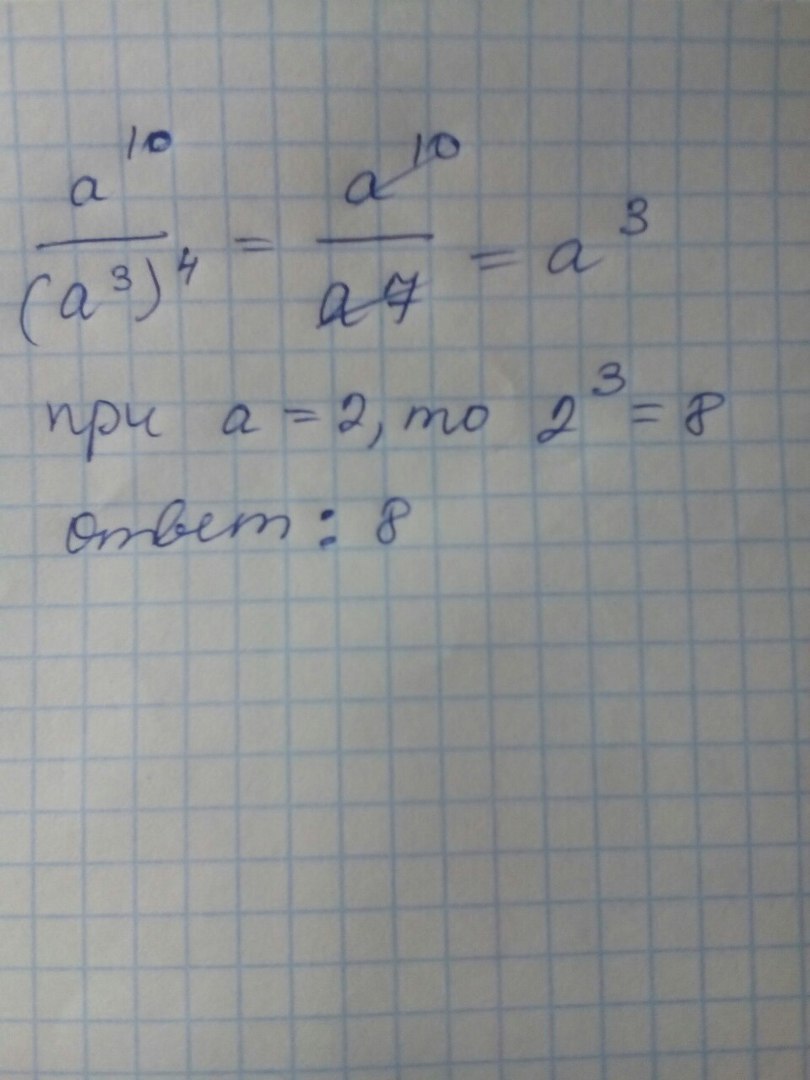 a¹⁰/(a³)⁴ = a¹⁰/a⁷ = a³
при a = 2, то 2³ = 8
ответ : 8